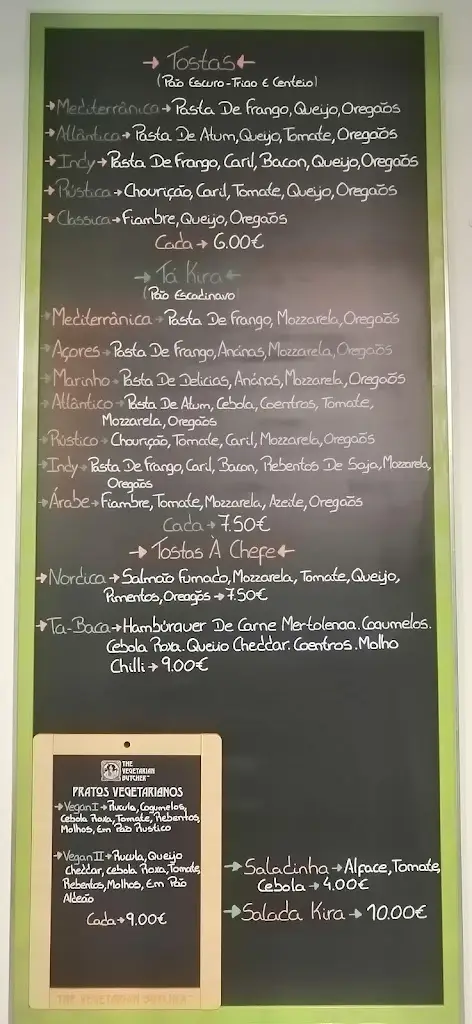 → Tostas ←
(Pão Escuro-Trigo E Centeio)
→Mediterrânica→Pasta De Frango, Queijo, Oregaõs
→Atlântica→Pasta De Atum, Queijo, Tomate, Oregaõs
→Indy→Pasta De Frango, Caril, Bacon, Queijo, Oregaõs
→Rústica→Chourição, Caril, Tomate, Queijo, Oregaõs
→Classica→Fiambre, Queijo, Oregaõs
Cada→6.00€
→Tá Kira←
(Pão Escadinavo)
→Mediterrânica→Pasta De Frango, Mozzarela, Oregaõs
→Açores→Pasta De Frango, Anánas, Mozzarela, Oregaõs
→Marinho→Pasta De Delicias, Anánas, Mozzarela, Oregaõs
→Atlântico→Pasta De Atum, Cebola, Coentros, Tomate,
Mozzarela, Oregaõs
→Rústico→Chourição, Tomate, Caril, Mozzarela, Oregaõs
→Indy→Pasta De Frango, Caril, Bacon, Rebentos De Soja, Mozzarela,
Oregaõs
→Árabe→Fiambre, Tomate, Mozzarela, Azeite, Oregaõs
Cada→7.50€
→Tostas À Chefe←
→Nordica→Salmão Fumado, Mozzarela, Tomate, Queijo,
Pimentos, Oregaõs→7.50€
→Ta-Baca→Hambúrguer De Carne Mertolenga. Cogumelos.
Cebola Roxa. Queijo Cheddar. Coentros. Molho
Chilli→9.00€
THE
VEGETARIAN
BUTCHER™
PRATOS VEGETARIANOS
→Vegan I→Rucula, Cogumelos,
Cebola Roxa, Tomate, Rebentos,
Molhos, Em Pão Rustico
→Vegan II→Rucula, Queijo
Cheddar, cebola Roxa, Tomate,
Rebentos, Molhos, Em Pão
Aldeão
Cada→9.00€
THE VEGETARIAN BUTCHER™
→Saladinha→Alface, Tomate,
Cebola→4.00€
→Salada Kira→10.00€